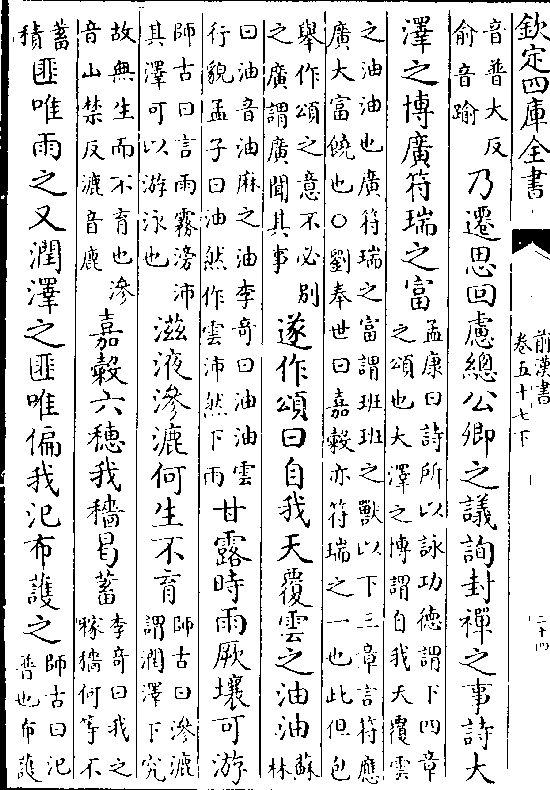 欽定四庫全書
前漢書
卷五十七下
二十四
音普大反
俞音踰
乃遷思回慮總公卿之議詢封禪之事詩大
澤之博廣符瑞之富
孟康曰詩所以詠功德謂下四章
之頌也大澤之博謂自我天覆雲
之油油也廣符瑞之富謂班班之獸以下三章言符應
廣大富饒也○劉奉世曰嘉穀亦符瑞之一也此但包
舉作頌之意不必別
之廣謂廣聞其事
遂作頌曰自我天覆雲之油油
蘇
林
曰油音油麻之油李奇曰油油雲
行貌孟子曰油然作雲沛然下雨
甘露時雨厥壤可游
師古曰言雨霧滂沛
其澤可以游泳也
滋液滲漉何生不育
師古曰滲漉
謂潤澤下究
故無生而不育也滲
音山禁反漉音鹿
嘉穀六穗我穡曷蓄
李奇曰我之
稼穡何等不
蓄
積
匪唯雨之又潤澤之匪唯偏我氾布護之
師古曰氾
普也布護